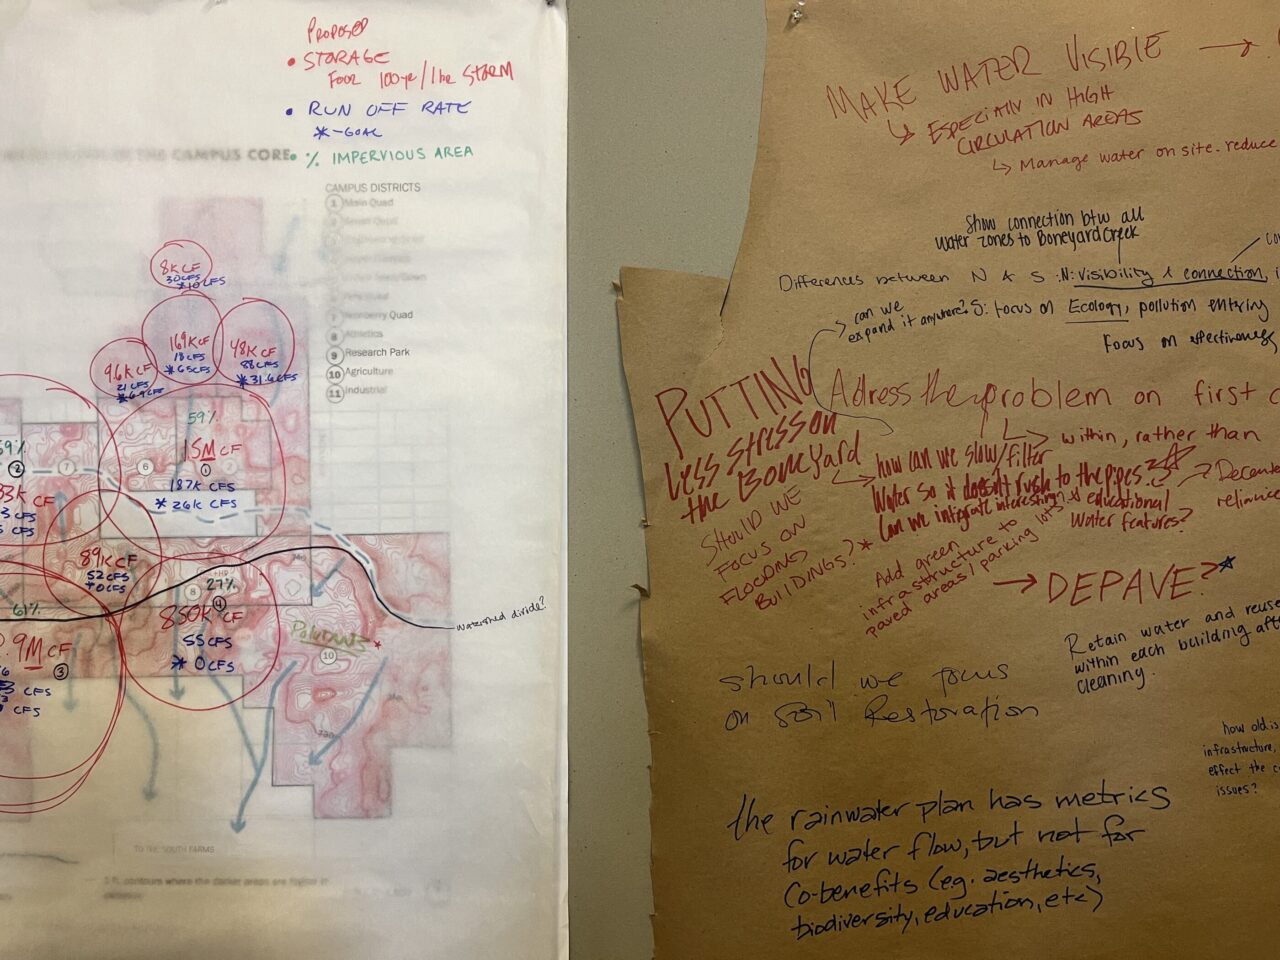 PROPOSED
• STORAGE
FOOR 100yr/1hr STORM
• RUN OFF RATE
*-GOAL
• % IMPERVIOUS AREA
THE CAMPUS CORE
CAMPUS DISTRICTS
1 Main Quad
7 Quad
8 Athletics
9 Research Park
10 Agriculture
11 Industrial
8K CF
30 CFS
*10 CFS
169K CF
18 CFS
*65 CFS
48K CF
88 CFS
*31.6 CFS
9.6K CF
21 CFS
*6.9 CFS
59%
1.5M CF
1
187K CFS
* 26K CFS
69%
2
7
6
89K CF
52 CFS
*0 CFS
27%
8
4
850K CF
55 CFS
* 0 CFS
61%
.9M CF
3
CFS
CFS
Polutants *
10
watershed divide?
TO THE SOUTH FARMS
contours where the darker areas are higher in
MAKE WATER VISIBLE →
↳ ESPECIALLY IN HIGH
CIRCULATION AREAS
↳ Manage water on site. reduce
Show connection btw all
water zones to Boneyard Creek
Differences between N & S: N: Visibility & connection,
can we
expand it anywhere?
S: Focus on Ecology, pollution entering
Focus on effectiveness,
PUTTING
less stress on
the BoneYard
Adress the problem on first
↳ within, rather than
↳ how can we slow/filter
Water so it doesn't rush to the pipes?
Can we integrate interesting & educational
Water features?
→ Decente
reliance
SHOULD WE
FOCUS ON
FLOODING
BUILDINGS?
* Add green
infrastructure to
paved areas/parking lots
→ DEPAVE? *
Retain water and reuse
within each building after
cleaning.
should we focus
on Soil Restoration
how old is
infrastructure,
effect the
issues?
the rainwater plan has metrics
for water flow, but not for
Co-benefits (e.g. aesthetics,
biodiversity, education, etc)